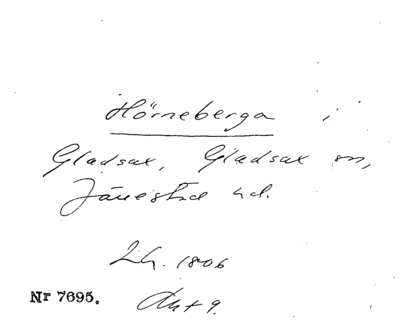 Hörneberga i
Gladsax, Gladsax sn,
Järrestad hd.
Lh. 1806
Nr 7695. Akt 9.